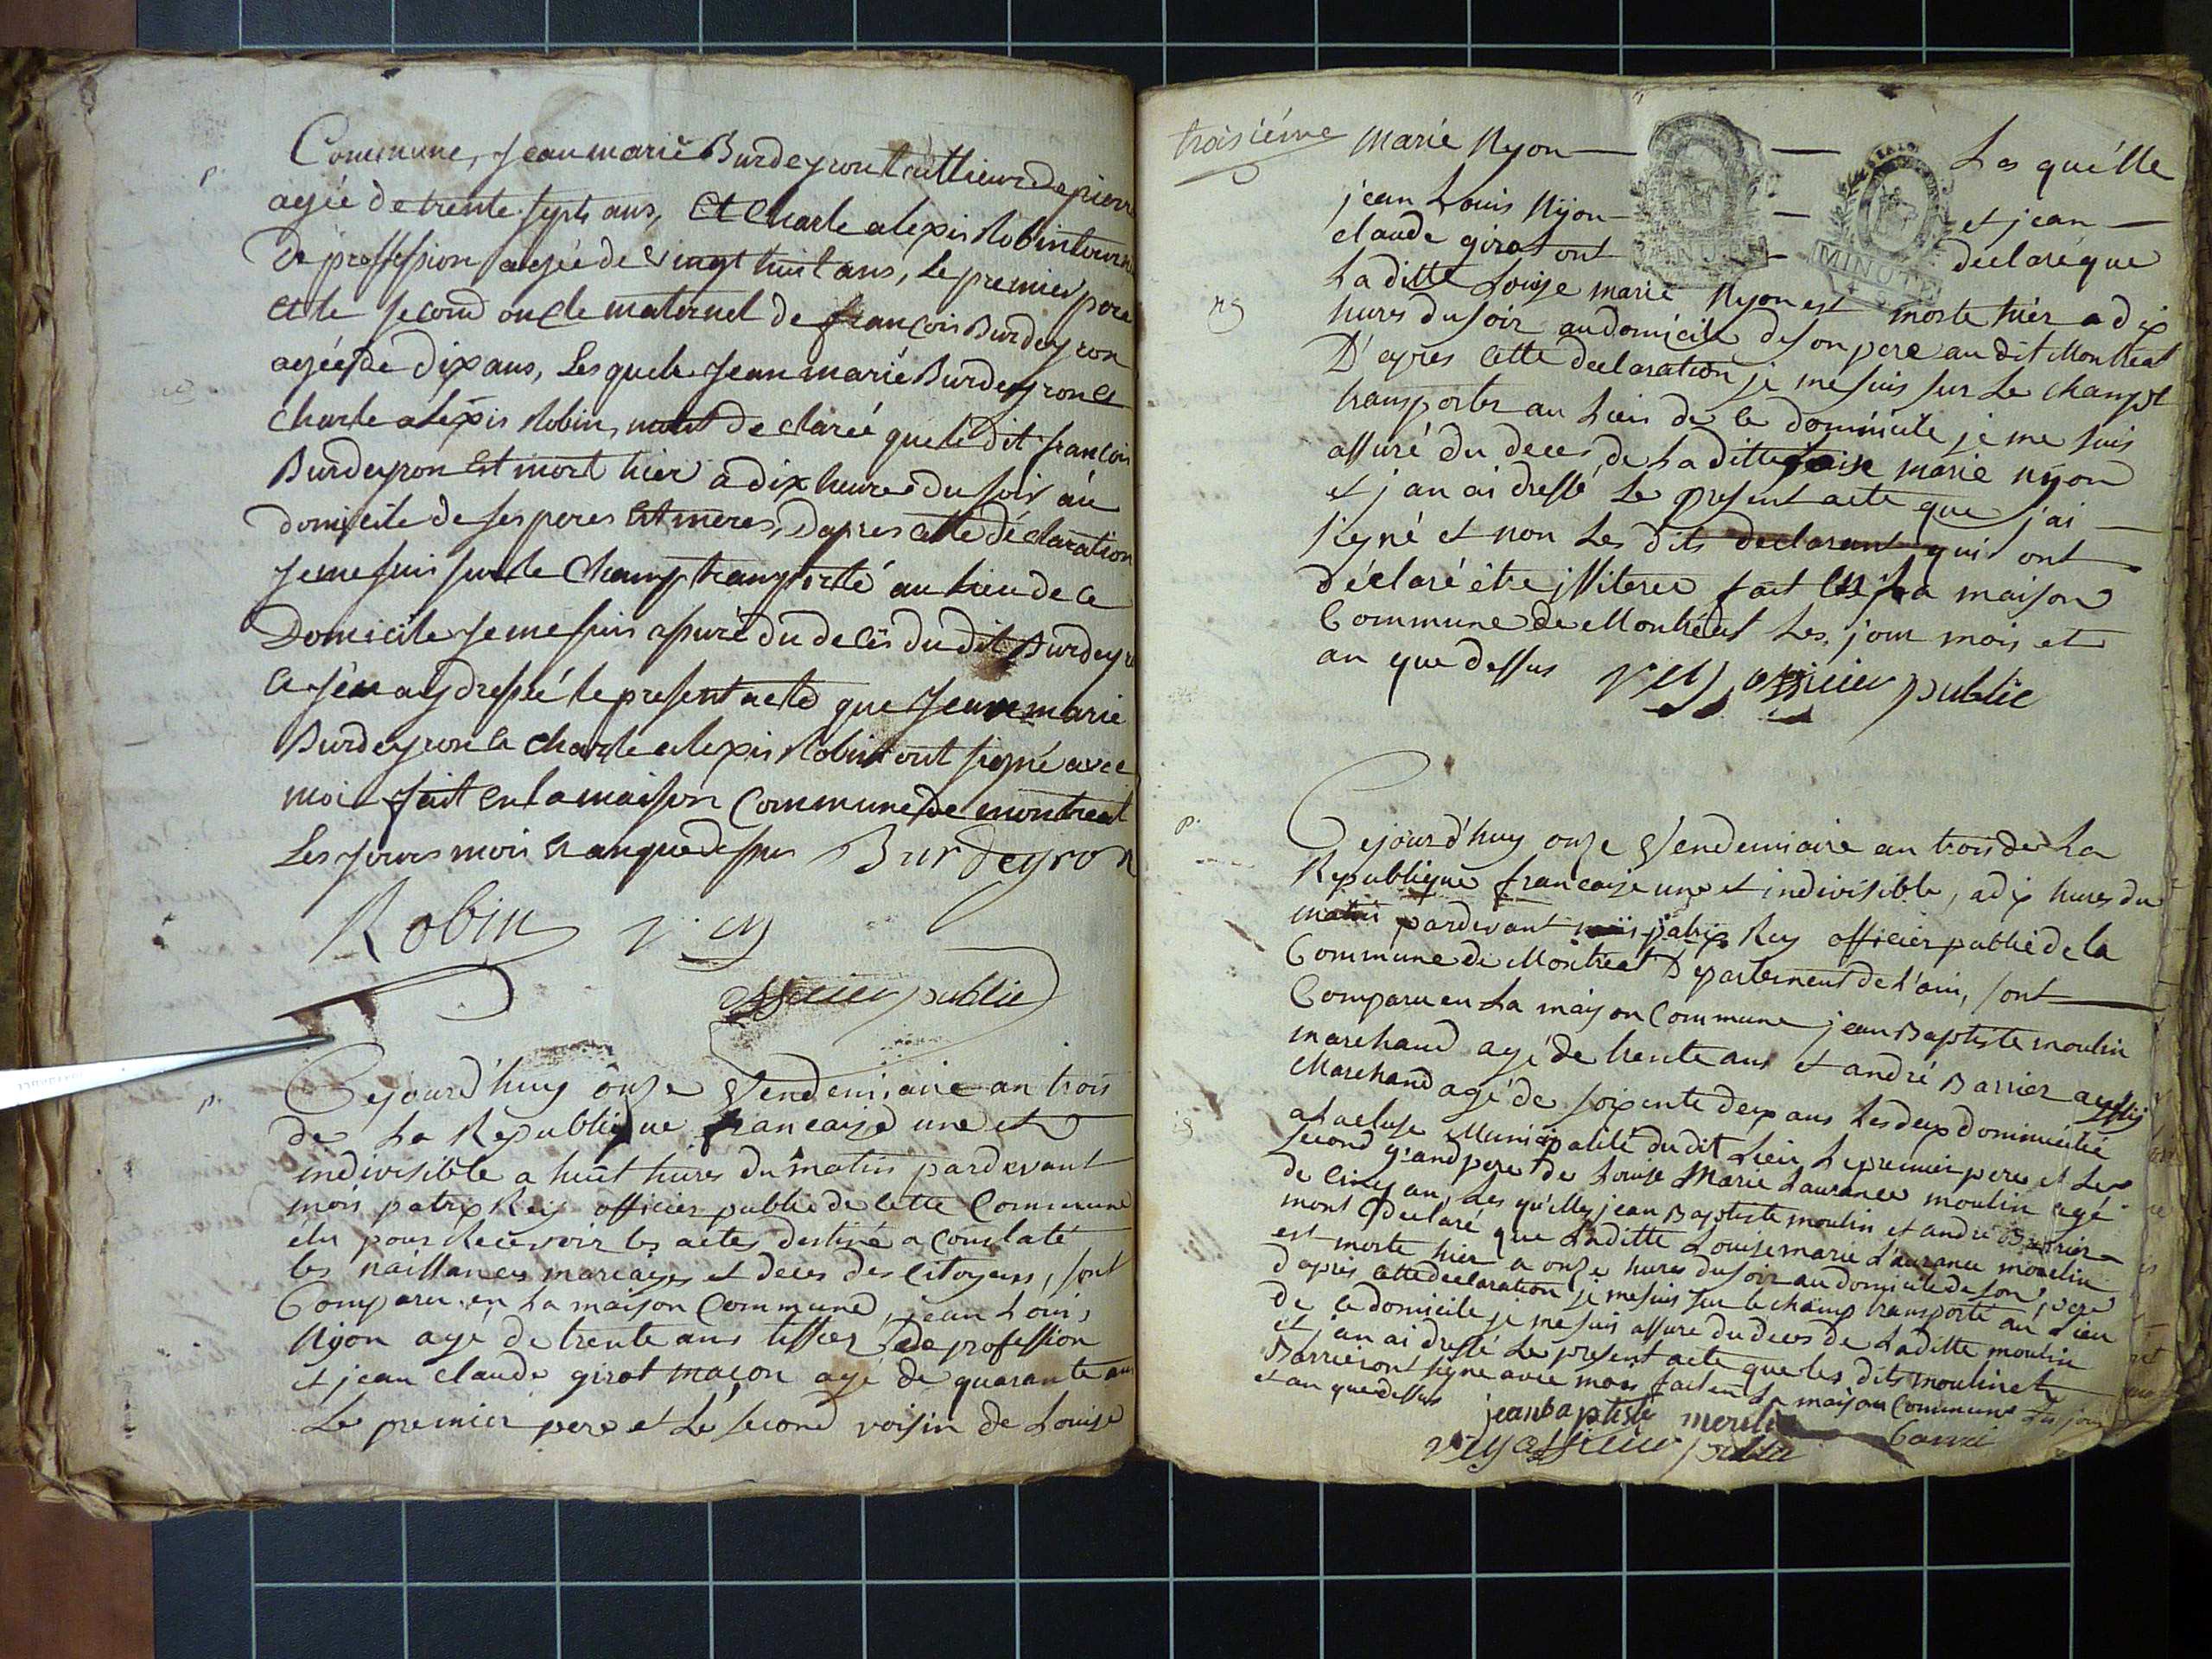 Commune, Jean marie Burdeyron tallieur de pierre
agée de trente septs ans, Et Charle alexis Robin tourneur
de proffession agée de vingt huit ans, Le premier pere
et le second oncle maternel de françois Burdeyron
agée de dix ans, Lesquels Jean marie Burdeyron et
Charle alexis Robin, mont declarée que le dit francois
Burdeyron est mort hier a dix heures du soir au
domicile de ses peres et meres, dapres cette déclaration
Je me suis sur le Champ transporté au Lieu de ce
Domicile Je me suis assuré du decès du dit Burdeyron
et J'en ay dressé le present acte que Jean marie
Burdeyron et Charle alexis Robin ont signé avec
moi fait en la maison Commune de montreal
Les jours mois et an que dessus Burdeyron
Robin rey
officier public
Cejourd'huy onze Vendemiaire an trois
de La Republique francaise une et
indivisible a huit hures du matin pardevant
moi patrix Rey officier public de cette Commune
élu pour Recevoir les actes destiné a constaté
les naissances mariages et deces des citoyens, sont
Comparu en La maison Commune, jean Louis
Nyon agé de trente ans tissier de profession
et jean claude girot maçon agé de quarante ans
Le premier pere et Le second voisin de Louise
troisiéme
Marie Nyon — — Les quélle
jean Louis Nyon — — et jean —
claude girot ont — declaré que
MINUTE
La ditte Louise marie Nyon est morte hier a dix
hures du soir au domicile de son pere au dit Montreal
D'apres cette declaration je me suis sur Le champt
transporter au Lieu de ce domicile je me suis
assuré du deces de La ditte Louise marie nyon
et j'an ai dressé Le present acte que j'ai —
signé et non Les dits declarant qui ont
déclaré être illiteree fait en La maison
Commune de Montréal Les jour mois et
an que dessus rey officier public
Cejourd'huy onze Vendemiaire an trois de La
Republique francaise une et indivisible, a dix hures du
matin pardevant moi patrix Rey officier public de la
Commune de Montreal Departement de l'ain, sont
Comparu en La maison Commune jean Baptiste moulin
marchand agé de trente ans et andré Barrier aussi
Marchand agé de soixente deux ans Les deux dommicilié
a La cluse Municipalité du dit Lieu Le premier pere et Le
second grand pere de Louise Marie Laurance moulin agé
de cinq an, Les qu'elles jean Baptiste moulin et andré Barrier
mont declaré que Laditte Louise marie Laurance moulin
est morte hier a onze hures du soir au domicile de son pere
d'apres cette declaration je me suis sur le champ transporté au Lieu
de ce domicile je me suis assure du deces de Laditte moulin
et j'an ai dressé Le present acte que les dits moulin et
Barrier ont signé avec moi fait en La maison Commune Les jour
et an que dessus
jean baptiste moulin
rey officier public